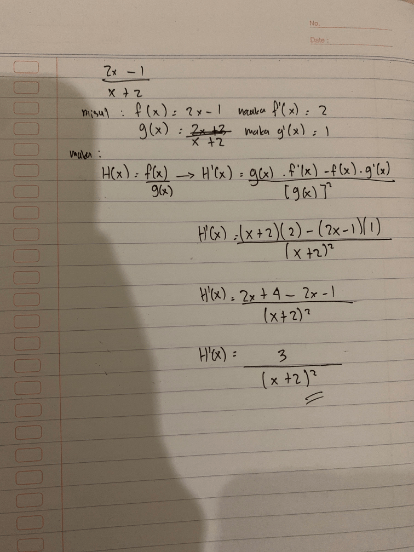 No.
Date:
2x - 1
x + 2
misal : f(x) = 2x - 1 maka f'(x) = 2
g(x) = 2x + 2 maka g'(x) = 1
x + 2
maka :
H(x) = f(x)/g(x) → H'(x) = g(x) . f'(x) - f(x) . g'(x) / [g(x)]²
H'(x) = (x + 2)(2) - (2x - 1)(1) / (x + 2)²
H'(x) = 2x + 4 - 2x - 1 / (x+2)²
H'(x) = 3 / (x + 2)²